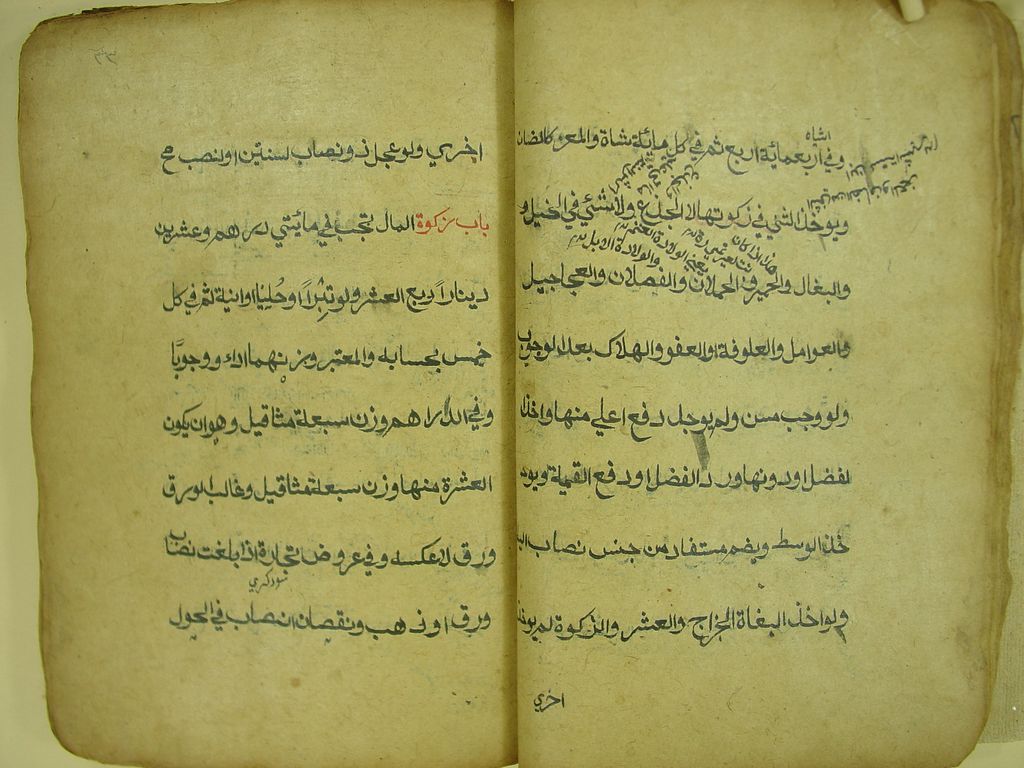 وفي اربعماية اربع ثم في كل ماية شاة والمعز كالضان
ويوخذ الثني في زكوتها لا الجذع ولا شئي في الخيل و
والبغال والحمير والحملان والفصلان والعجاجيل
والعوامل والعلوفة والعفو والهلاك بعد الوجوب
ولو وجب مسن ولم يوجد دفع اعلي منها واخذ
لفضل او دونها ورد الفضل او دفع القيمة ويو
خذ الوسط ويضم مستفاد من جنس نصاب اليه
ولو اخذ البغاة الخراج والعشر والزكوة لم يوخذ
اخري
اخري ولو عجل ذو نصاب لسنتين او لنصب صح
باب زكوة المال تجب في مايتي دراهم وعشرين
ديناراً ربع العشر ولو تبراً او حليا او انية ثم في كل
خمس بحسابه والمعتبر وزنهما اداء ووجوبًا
وفي الدراهم وزن سبعة مثاقيل وهو ان يكون
العشرة منها وزن سبعة مثاقيل وغالب الورق
ورق لا عكسه وفي عروض تجارة اذا بلغت نصاب
ورق او ذهب ونقصان النصاب في الحول